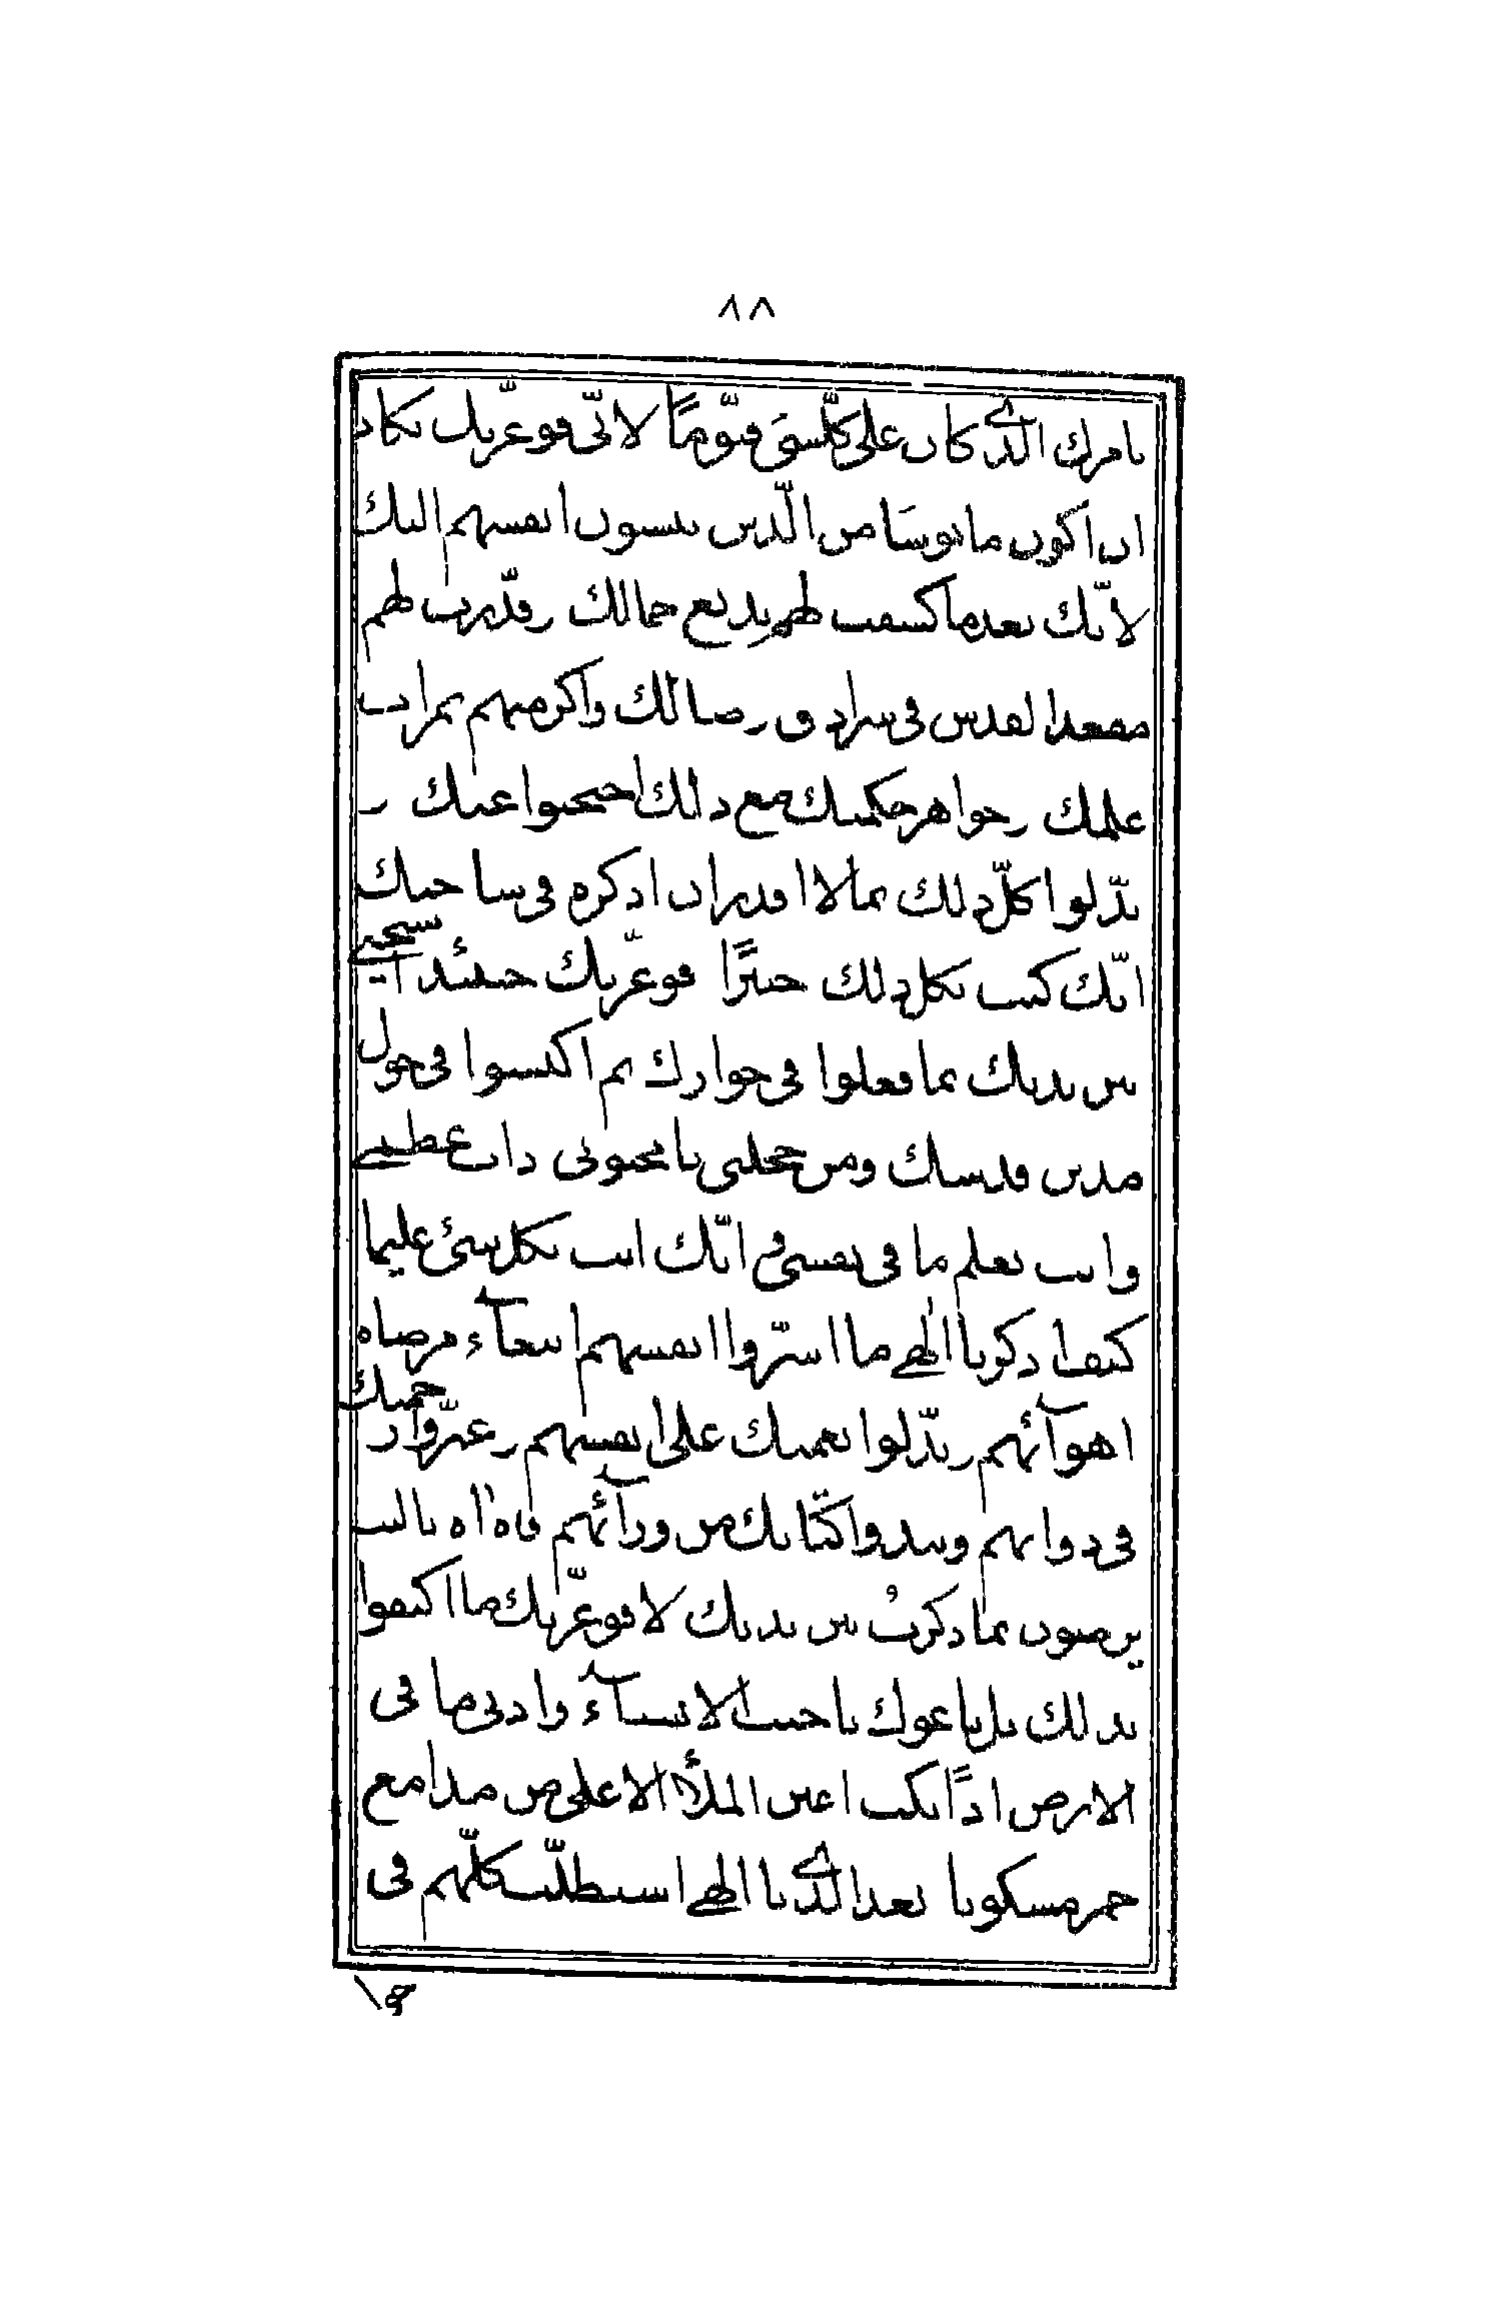 ٨٨
بامرك الّذي كان على كلّ شئ قيّومًا لانّى فوعزّتك نكاد
ان اكون مايوسًا من الّذين ينسبون انفسهم اليك
لانّك بعد ما كشفت لهم بديع جمالك وقدّرت لهم
مقعد القدس فى سرادق رضائك واكرمتهم بمرات
علمك وجواهر حكمتك مع ذلك احتجبوا عنك و
بدّلوا كلّ ذلك بما لا اقدر ان اذكره فى ساحتك
انّك كنت بكل ذلك خبيرًا فوعزّتك حينئذ استحيى
بين يديك بما فعلوا فى جوارك ثم اكتسبوا فى حول
مدين قدسك ومن خجلتى يا محبوبى ذاب عظمى
وانت تعلم ما فى نفسى انّك انت بكل شئ عليما
كيف اذكر يا الهي ما استرّوا انفسهم ابتغآء مرضاة
اهوآئهم وبدّلوا نعمتك على انفسهم وغيّروا رحمتك
فى ذواتهم ونبذوا كتابك من ورآئهم فاه اه ياليت
يرضون بما ذكرتُ بين يديك لا فوعزّتك ما اكتفوا
بذلك بل باعوك يا حبيب الانبيآء وادنى ما فى
الارض اذًا بكت اعين الملأ الاعلى من مدامع
حمر مسكوبا بعد الّذي يا الهي استظلّت كلّهم فى